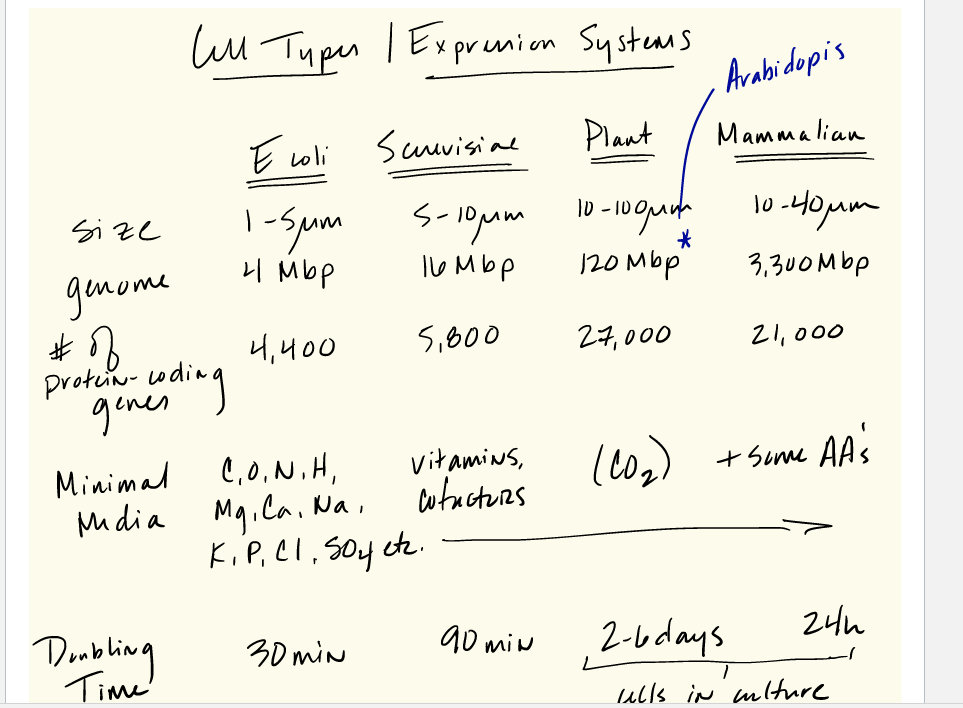 Cell Types / Expression Systems
Arabidopis
E coli S cerevisiae Plant Mammalian
size 1-5μm 5-10μm 10-100μm 10-40μm
genome 4 Mbp 16 Mbp 120 Mbp* 3,300 Mbp
# of protein-coding genes 4,400 5,800 27,000 21,000
Minimal Media C, O, N, H, vitamins, (CO2) + some AA's
Mg, Ca, Na, cofactors
K, P, Cl, SO4 etc.
Doubling Time 30 min 90 min 2-6 days 24h
cells in culture